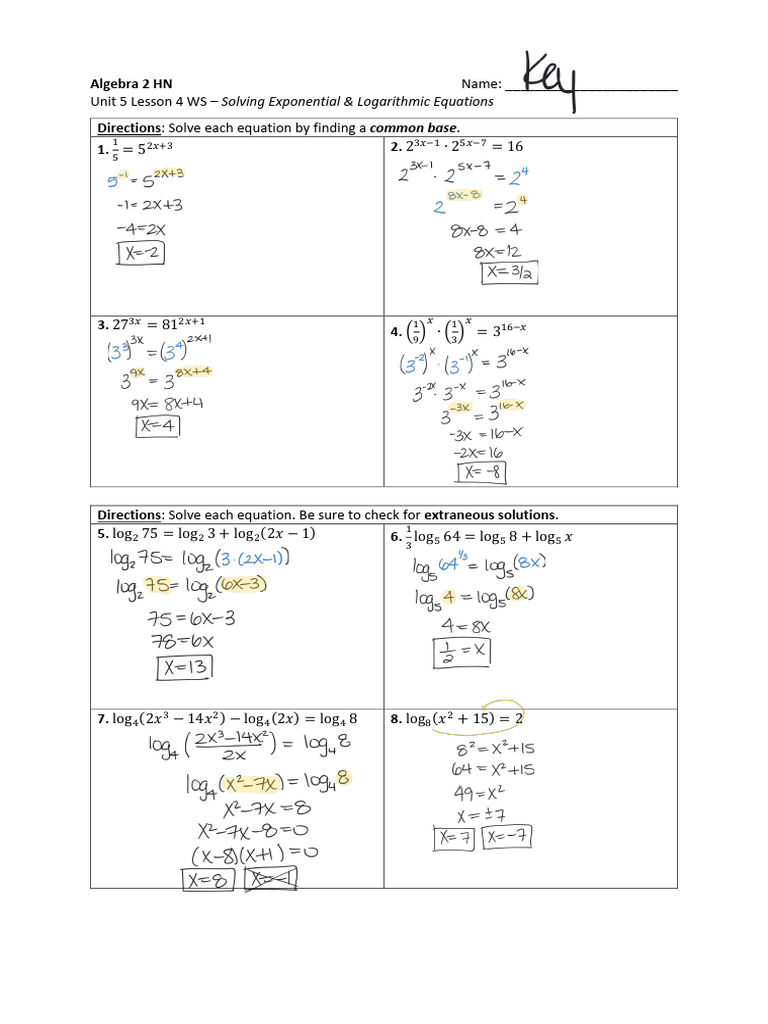 Algebra 2 HN Name: Key
Unit 5 Lesson 4 WS – Solving Exponential & Logarithmic Equations
Directions: Solve each equation by finding a common base.
1. 1/5 = 5^(2x+3)
5^(-1) = 5^(2x+3)
-1 = 2x+3
-4 = 2x
x = -2
2. 2^(3x−1) · 2^(5x−7) = 16
2^(3x-1) · 2^(5x-7) = 2^4
2^(8x-8) = 2^4
8x-8 = 4
8x = 12
x = 3/2
3. 27^(3x) = 81^(2x+1)
(3^3)^(3x) = (3^4)^(2x+1)
3^(9x) = 3^(8x+4)
9x = 8x+4
x = 4
4. (1/9)^x · (1/3)^x = 3^(16−x)
(3^(-2))^x · (3^(-1))^x = 3^(16-x)
3^(-2x) · 3^(-x) = 3^(16-x)
3^(-3x) = 3^(16-x)
-3x = 16-x
-2x = 16
x = -8
Directions: Solve each equation. Be sure to check for extraneous solutions.
5. log₂ 75 = log₂ 3 + log₂(2x − 1)
log₂75 = log₂(3·(2x-1))
log₂75 = log₂(6x-3)
75 = 6x-3
78 = 6x
x = 13
6. 1/3 log₅ 64 = log₅ 8 + log₅ x
log₅64^(1/3) = log₅(8x)
log₅4 = log₅(8x)
4 = 8x
1/2 = x
7. log₄(2x³ − 14x²) − log₄(2x) = log₄ 8
log₄((2x³-14x²)/2x) = log₄8
log₄(x²-7x) = log₄8
x²-7x = 8
x²-7x-8 = 0
(x-8)(x+1) = 0
x = 8 x = -1
8. log₈(x² + 15) = 2
8² = x²+15
64 = x²+15
49 = x²
x = ±7
x = 7 x = -7